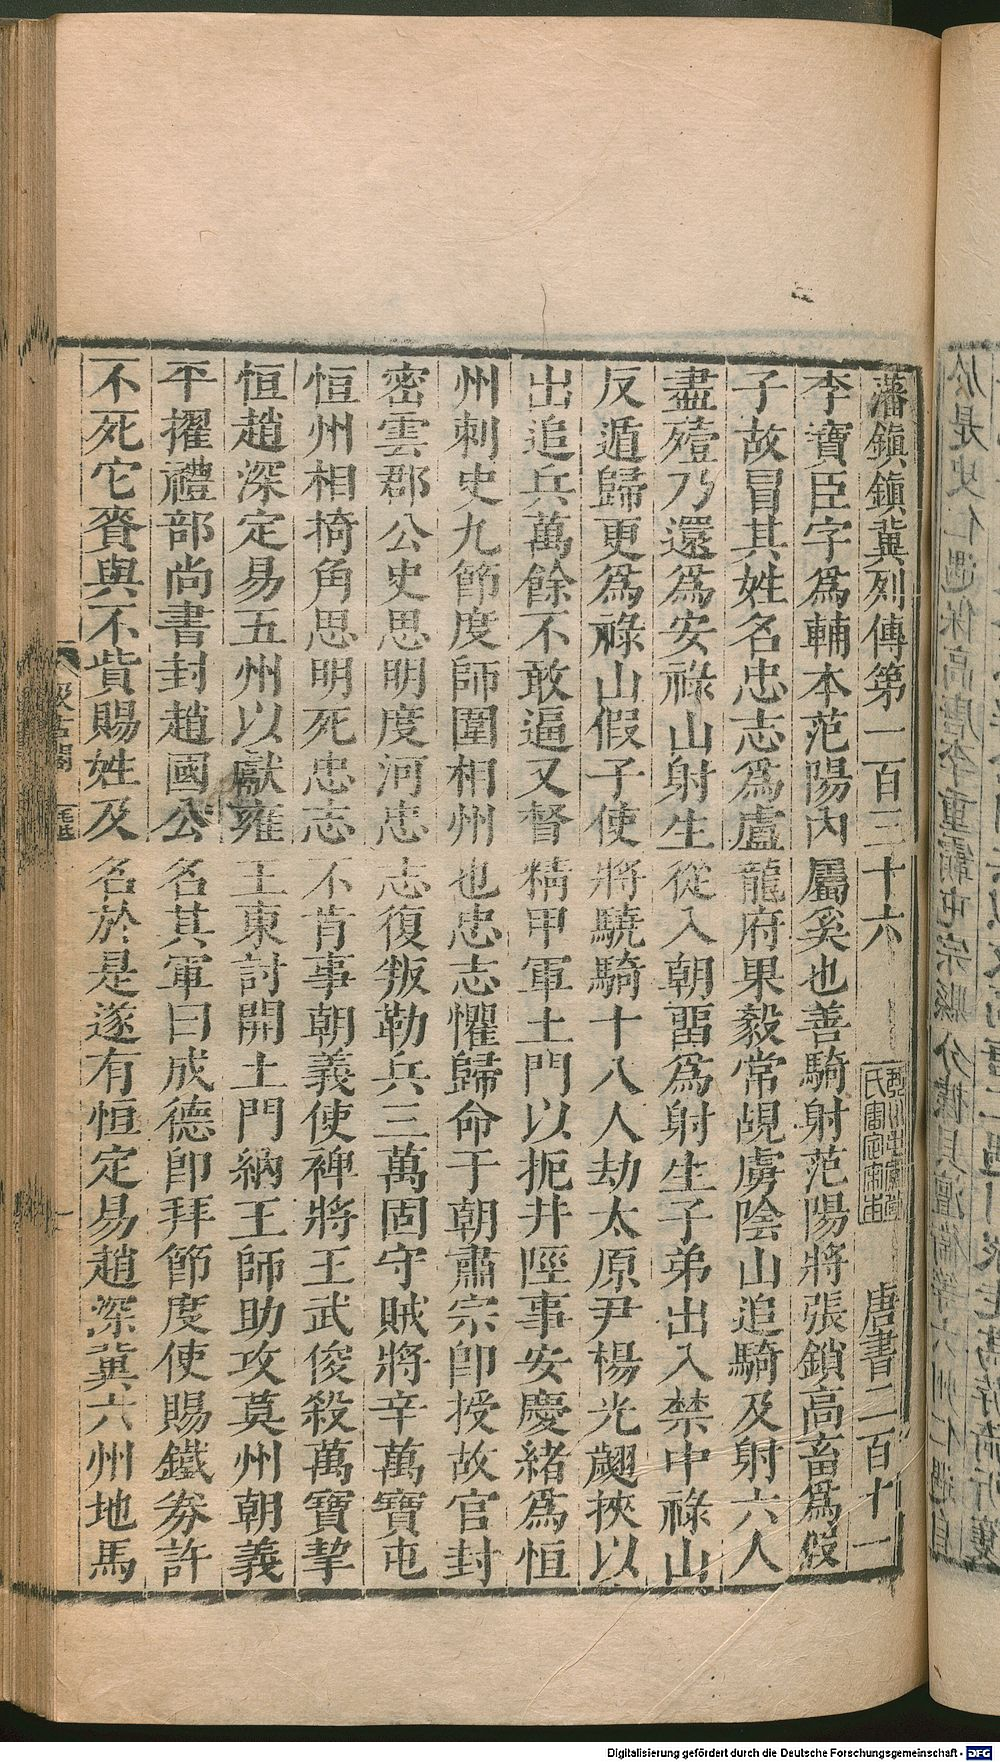 藩鎮鎮冀列傳第一百三十六 唐書二百十一
李寶臣字爲輔本范陽內屬奚也善騎射范陽將張鎖高畜爲假
子故冒其姓名忠志爲盧龍府果毅常覘虜陰山追騎及射六人
盡殪乃還爲安祿山射生從入朝畱爲射生子弟出入禁中祿山
反遁歸更爲祿山假子使將驍騎十八人劫太原尹楊光翽挾以
出追兵萬餘不敢逼又督精甲軍土門以扼井陘事安慶緒爲恒
州刺史九節度師圍相州也忠志懼歸命于朝肅宗卽授故官封
密雲郡公史思明度河忠志復叛勒兵三萬固守賊將辛萬寶屯
恒州相掎角思明死忠志不肯事朝義使裨將王武俊殺萬寶挈
恒趙深定易五州以獻雍王東討開土門納王師助攻莫州朝義
平擢禮部尚書封趙國公名其軍曰成德卽拜節度使賜鐵券許
不死它賚與不貲賜姓及名於是遂有恒定易趙深冀六州地馬
汲古閣
Digitalisierung gefördert durch die Deutsche Forschungsgemeinschaft - DFG